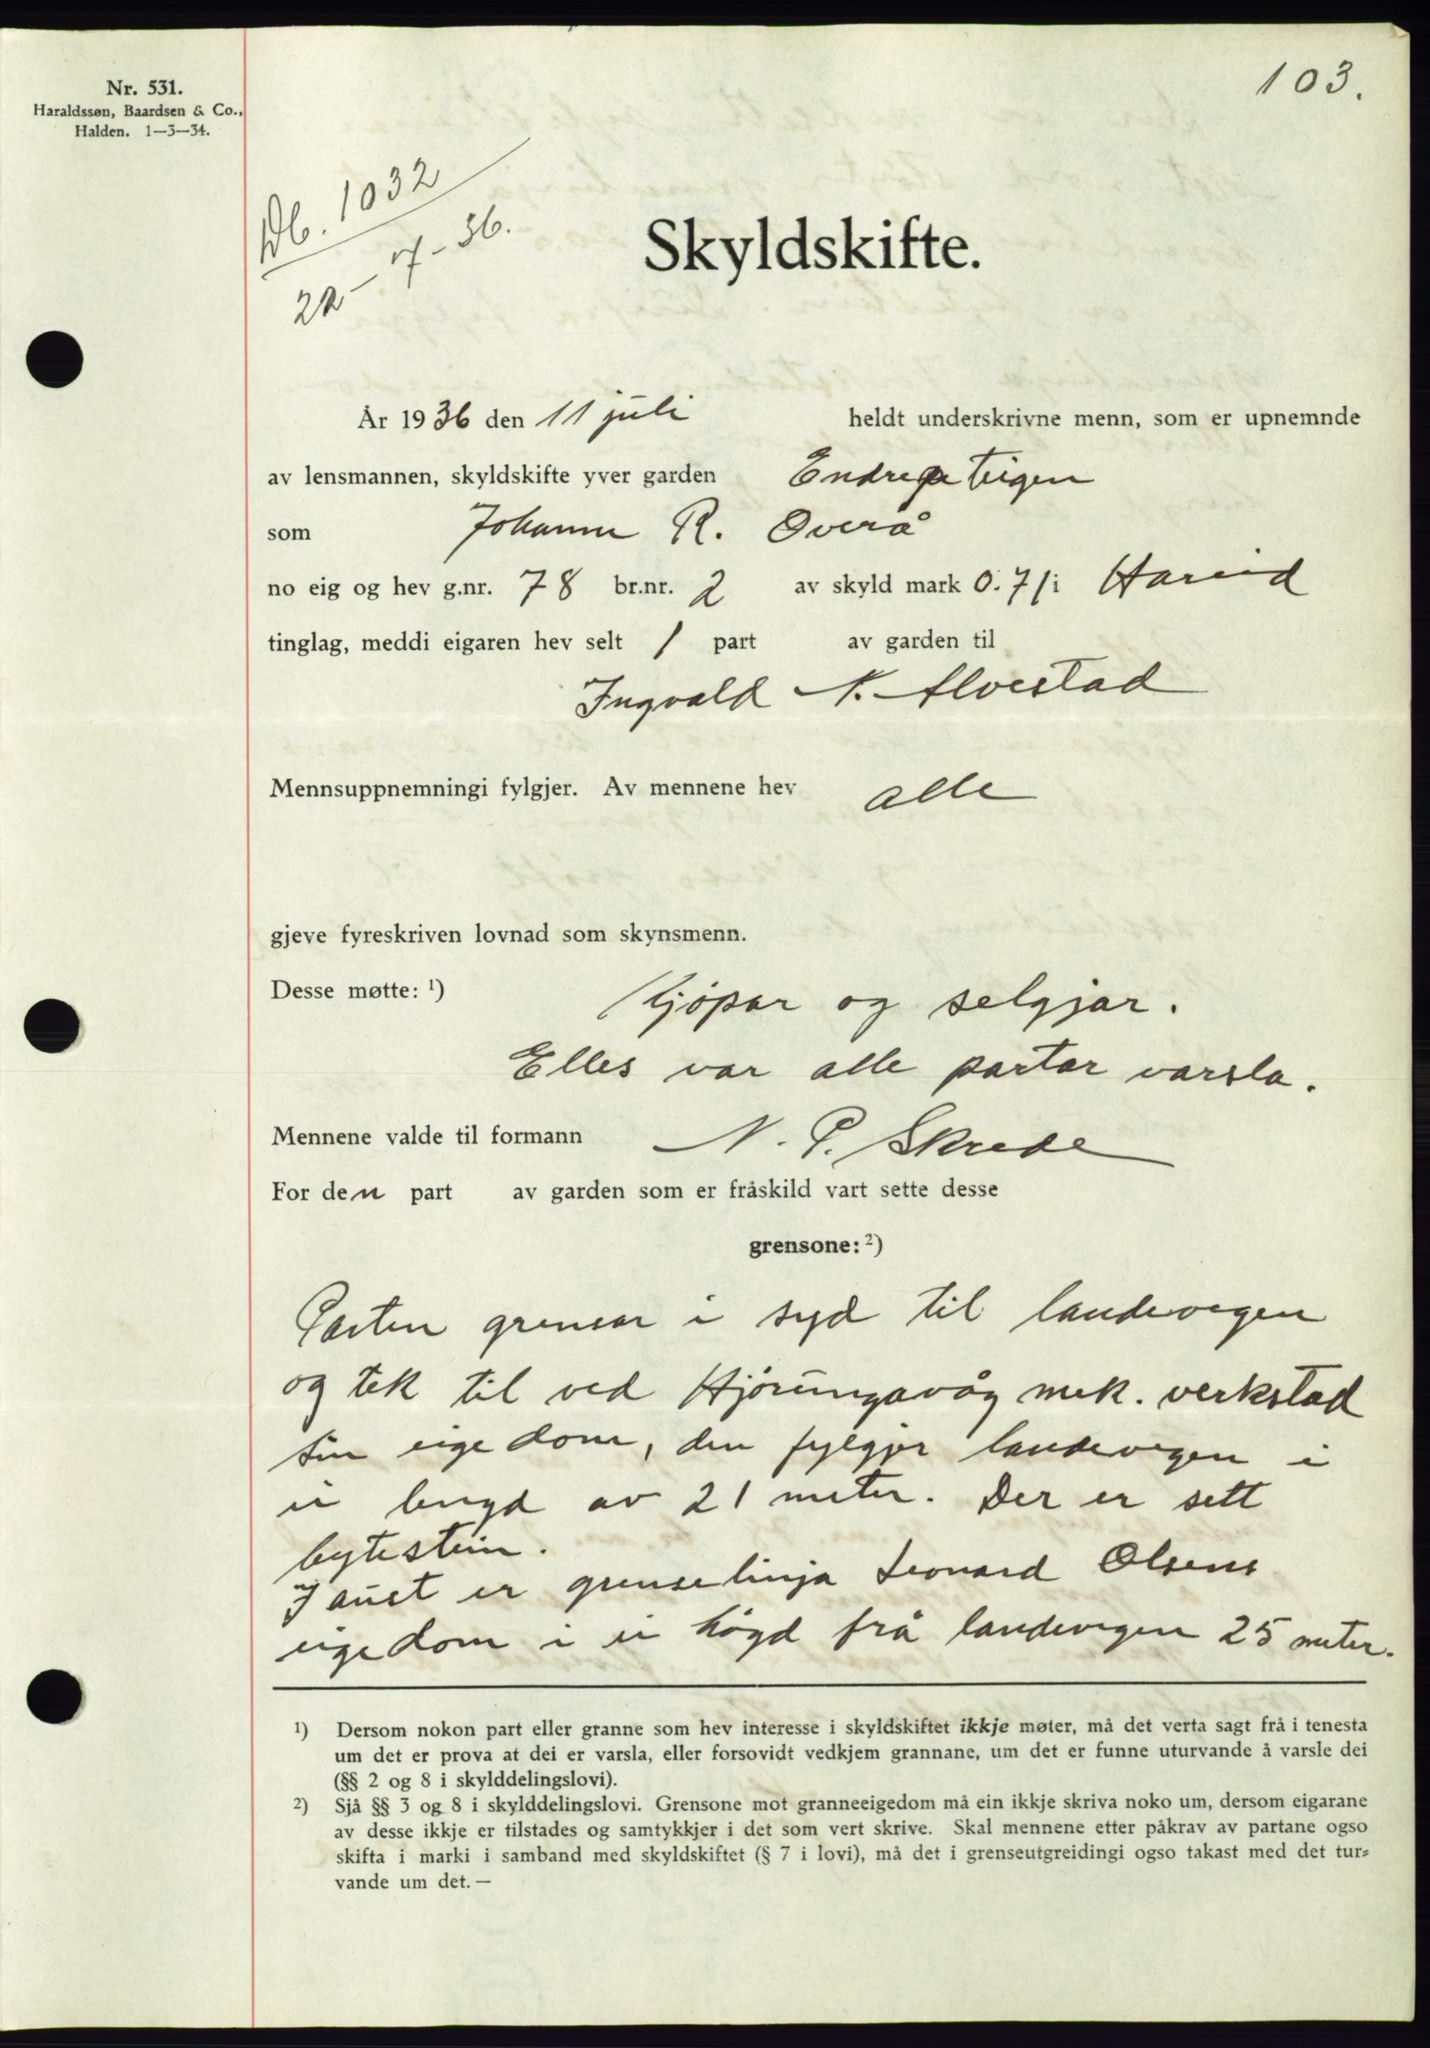 103.
Nr. 531.
Haraldssøn, Baardsen & Co.,
Halden. 1—3—34.
Db. 1032
22 - 7 - 36.
Skyldskifte.
År 1936 den 11 juli heldt underskrivne menn, som er upnemnde
av lensmannen, skyldskifte yver garden Endreteigen
som Johanne R. Overå
no eig og hev g.nr. 78 br.nr. 2 av skyld mark 0.71 i Hareid
tinglag, meddi eigaren hev selt 1 part av garden til
Ingvald N. Alvestad
Mennsuppnemningi fylgjer. Av mennene hev alle
gjeve fyreskriven lovnad som skynsmenn.
Desse møtte: ¹) Kjöpar og selgjar.
Elles var alle partar varsla.
Mennene valde til formann N. P. Skrede
For den part av garden som er fråskild vart sette desse
grensone: ²)
Parten grensar i syd til landevegen
og tek til ved Hjörungavåg mek. verkstad
sin eigedom, den fylgjer landevegen i
ei lengd av 21 meter. Der er sett
bytestein.
I aust er grenselinja Leonard Olsens
eigedom i ei högd frå landevegen 25 meter.
¹) Dersom nokon part eller granne som hev interesse i skyldskiftet ikkje møter, må det verta sagt frå i tenesta
um det er prova at dei er varsla, eller forsovidt vedkjem grannane, um det er funne uturvande å varsle dei
(§§ 2 og 8 i skylddelingslovi).
²) Sjå §§ 3 og 8 i skylddelingslovi. Grensone mot granneeigedom må ein ikkje skriva noko um, dersom eigarane
av desse ikkje er tilstades og samtykkjer i det som vert skrive. Skal mennene etter påkrav av partane ogso
skifta i marki i samband med skyldskiftet (§ 7 i lovi), må det i grenseutgreidingi ogso takast med det tur-
vande um det. —